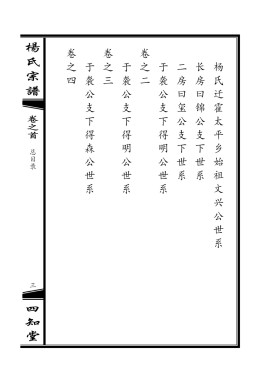 杨氏迁霍太平乡始祖文兴公世系
长房曰锦公支下世系
二房曰玺公支下世系
卷之二
于袭公支下得明公世系
卷之三
于袭公支下得明公世系
卷之四
于袭公支下得森公世系
楊氏宗譜
卷之首
总目录
三
四知堂